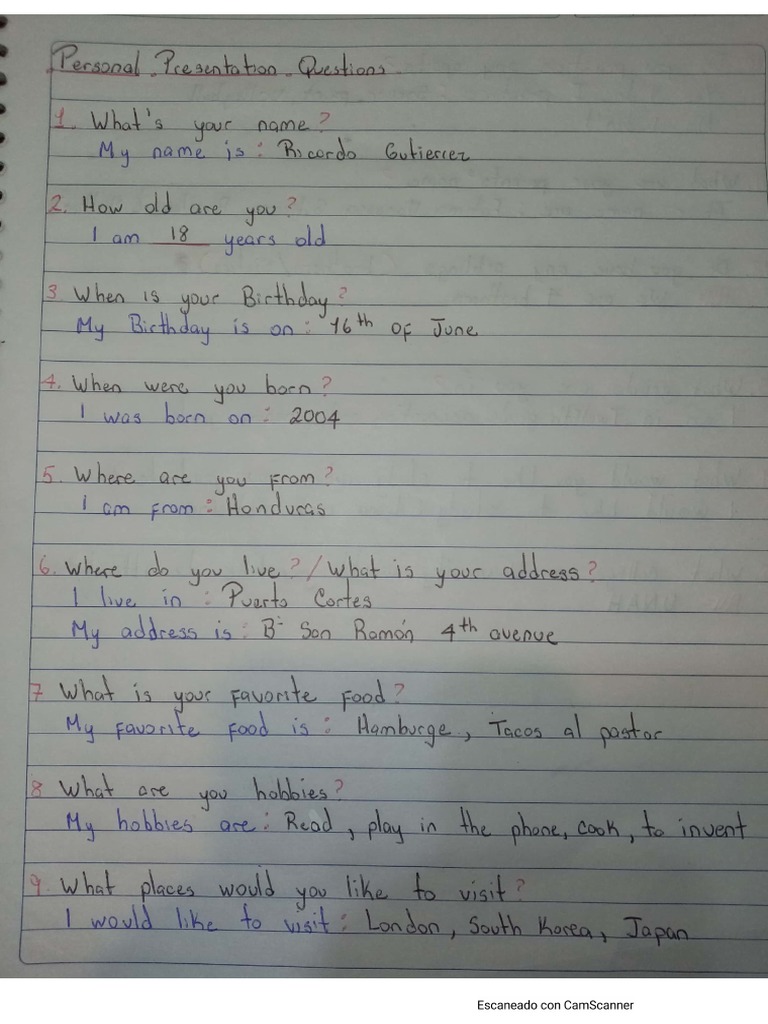 Personal Presentation Questions
1. What's your name?
My name is: Ricardo Gutierrez
2. How old are you?
I am 18 years old
3 When is your Birthday?
My Birthday is on: 16th of June
4. When were you born?
I was born on: 2004
5. Where are you from?
I am from: Honduras
6. Where do you live? / What is your address?
I live in: Puerto Cortes
My address is: B: San Ramón 4th avenue
7 What is your favorite food?
My favorite food is: Hamburge, Tacos al pastor
8 What are you hobbies?
My hobbies are: Read, play in the phone, cook, to invent
9. What places would you like to visit?
I would like to visit: London, South Korea, Japan
Escaneado con CamScanner